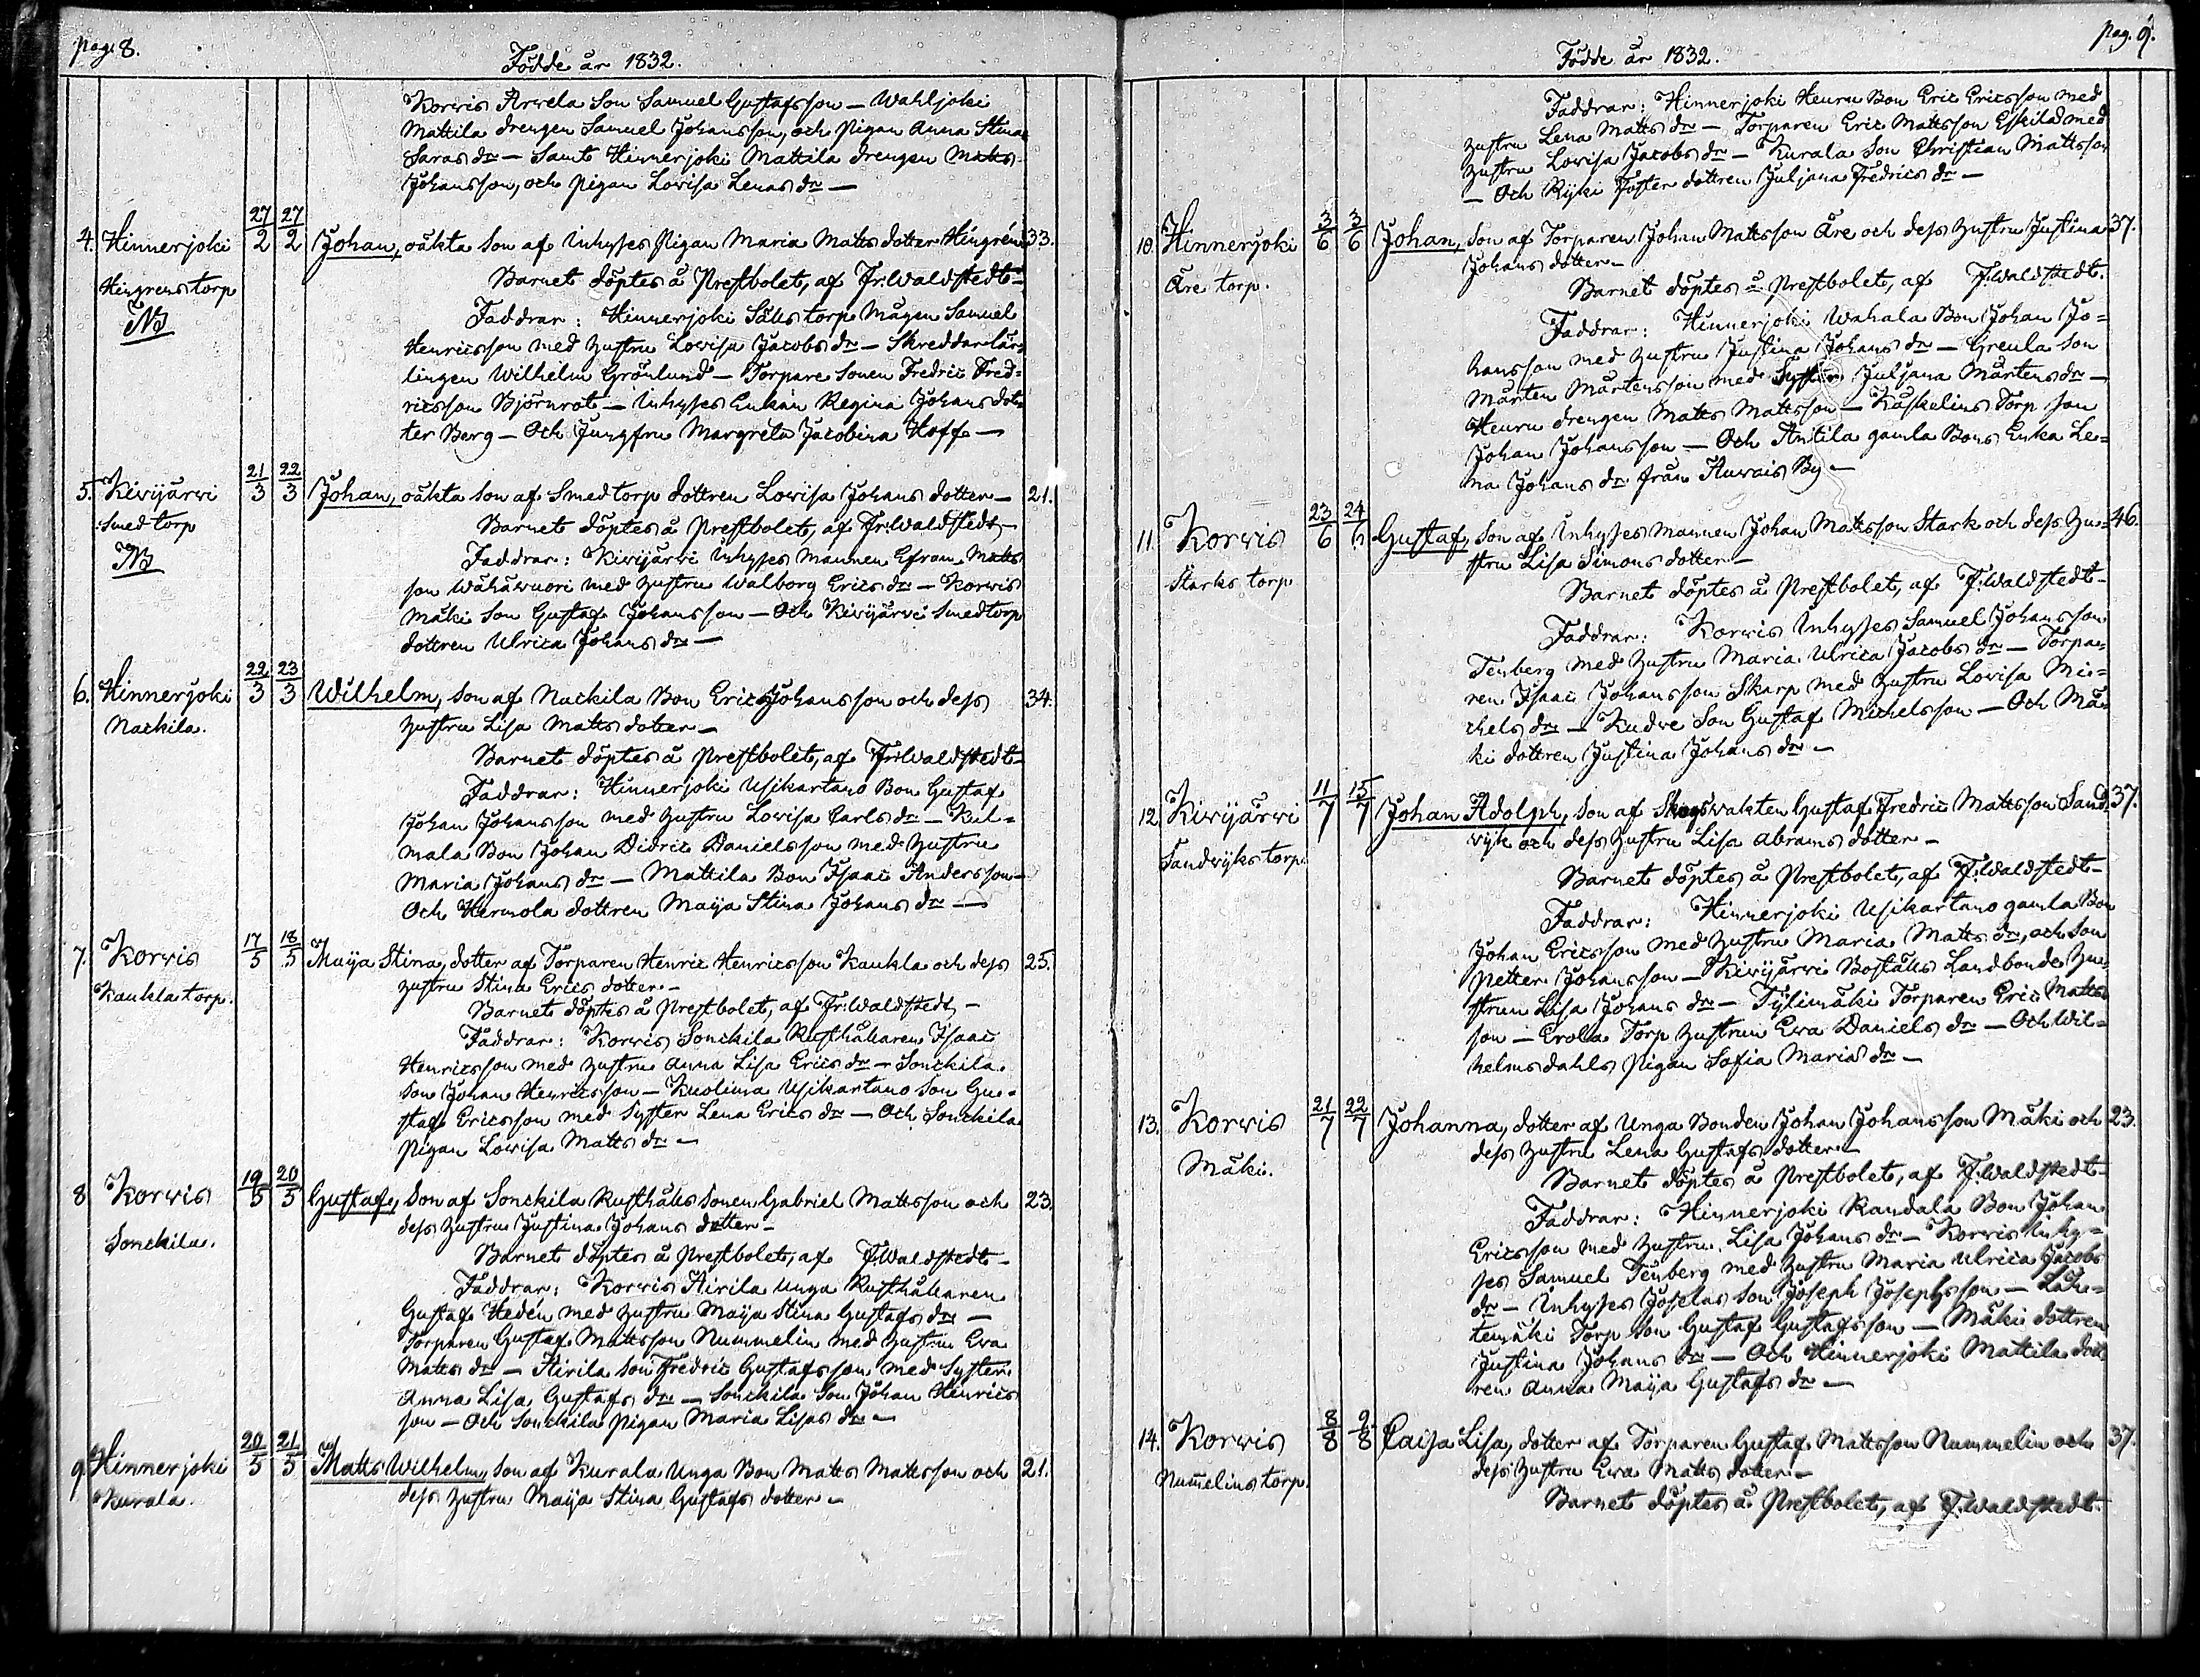 pag. 8.
Födde år 1832.
Korvis Arvela Son Samuel Gustafsson — Wahljoki
Mattila drengen Samuel Johansson, och pigan Anna Stina
Saras dr — Samt Hinnerjoki Mattila drengen Matts
Johansson, och pigan Lovisa Lenas dr —
4. Hinnerjoki 27/2 27/2 Johan, oäkta Son af Inhyses Pigan Maria Matts dotter Hingrén 33.
Hingrens torp Barnet döptes å Prestbolet, af Fr: Waldstedt —
NB Faddrar: Hinnerjoki Sälls torp Mågen Samuel
Henricsson med hustru Lovisa Jacobs dr — Skreddar lär-
lingen Wilhelm Grönlund — Torpare Sonen Fredric Fred-
ricsson Björnrot — Inhyses Enkan Regina Johans dot-
ter Berg — Och Jungfru Margreta Jacobina Hoff —
5. Kivijärvi 21/3 22/3 Johan, oäkta Son af Smedtorp dottren Lovisa Johans dotter — 21.
Smed torp Barnet döptes å Prestbolet, af Fr: Waldstedt —
NB Faddrar: Kivijärvi Inhyses Mannen Efram Matts
son Wähävuori med hustru Walborg Erics dr — Korvis
Mäki Son Gustaf Johansson — Och Kivijärvi Smedtorp
dottren Ulrica Johans dr —
6. Hinnerjoki 22/3 23/3 Wilhelm, Son af Nackila Bon Eric Johansson och dess 34.
Nackila. hustru Lisa Matts dotter —
Barnet döptes å Prestbolet, af Fr: Waldstedt —
Faddrar: Hinnerjoki Usikartano Bon Gustaf
Johan Johansson med hustru Lovisa Carls dr — Kul-
mala Bon Johan Didric Danielsson med hustru
Maria Johans dr — Mattila Bon Isaac Andersson —
Och Hermola dottren Maija Stina Johans dr —
7. Korvis 17/5 18/5 Maija Stina, dotter af Torparen Henric Henricsson Kaukla och dess 25.
Kaukla torp. hustru Stina Erics dotter —
Barnet döptes å Prestbolet, af Fr: Waldstedt —
Faddrar: Korvis Sonckila Rusthållaren Isaac
Henricsson med hustru Anna Lisa Erics dr — Sonckila
Son Johan Henricsson — Kuolima Usikartano Son Gu-
staf Ericsson med Syster Lena Erics dr — Och Sonckila
Pigan Lovisa Matts dr —
8 Korvis 19/5 20/5 Gustaf, Son af Sonckila Rusthålls Sonen Gabriel Mattsson och 23.
Sonckila. dess hustru Justina Johans dotter —
Barnet döptes å Prestbolet, af F. Waldstedt —
Faddrar: Korvis Airila unga Rusthållaren
Gustaf Hedén med hustru Maija Stina Gustafs dr —
Torparen Gustaf Mattsson Nummelin med hustru Eva
Matts dr — Airila Son Fredric Gustafsson med Syster
Anna Lisa Gustafs dr — Sonckila Son Johan Henrics
son — Och Sonckila pigan Maria Lisas dr —
9 Hinnerjoki 20/5 21/5 Matts Wilhelm, Son af Kurala unga Bon Matts Mattsson och 21.
Kurala. dess hustru Maija Stina Gustafs dotter —
pag. 9.
Födde år 1832.
Faddrar: Hinnerjoki Heuru Bon Eric Ericsson med
hustru Lena Matts dr — Torparen Eric Mattsson Eskild med
hustru Lovisa Jacobs dr — Kurala Son Christian Mattsson
— Och Kyki Foster dottren Juljana Fredrics dr —
10. Hinnerjoki 3/6 3/6 Johan, Son af Torparen Johan Mattsson Åre och dess hustru Justina 37.
Åre torp. Johans dotter —
Barnet döptes å Prestbolet, af F. Waldstedt.
Faddrar: Hinnerjoki Wahala Bon Johan Jo-
hansson med hustru Justina Johans dr — Greula Son
Mårten Mårtensson med Syster Juljana Mårtens dr —
Heuru drengen Matts Mattsson — Kaskelins Torp Son
Johan Johansson — Och Antila gamla Bons Enka Le-
na Johans dr från Auvais By —
11. Korvis 23/6 24/6 Gustaf, Son af Inhyses mannen Johan Mattsson Stark och dess hu- 46.
Starks torp stru Lisa Simons dotter —
Barnet döptes å Prestbolet, af F. Waldstedt —
Faddrar: Korvis Inhyses Samuel Johansson
Tenberg med hustru Maria Ulrica Jacobs dr — Torpa-
ren Isaac Johansson Skarp med hustru Lovisa Mi-
chels dr — Kudve Son Gustaf Michelsson — Och Mä-
ki dottren Justina Johans dr —
12 Kivijärvi 11/7 15/7 Johan Adolph, Son af Skogsvakten Gustaf Fredric Mattsson Sand- 37.
Sandvijks torp. vijk och dess hustru Lisa Abrams dotter —
Barnet döptes å Prestbolet, af F. Waldstedt —
Faddrar: Hinnerjoki Usikartano gamla Bon
Johan Ericsson med hustru Maria Matts dr, och Son
Petter Johansson — Kivijärvi Boställs Landbonde hu-
strun Lisa Johans dr — Tylimäki Torparen Eric Matts
son — Erola Torp hustrun Eva Daniels dr — Och Wil-
helmsdahls Pigan Sofia Marias dr —
13. Korvis 21/7 22/7 Johanna, dotter af Unga Bonden Johan Johansson Mäki och 23.
Mäki. dess hustru Lena Gustafs dotter —
Barnet döptes å Prestbolet, af F. Waldstedt —
Faddrar: Hinnerjoki Randala Bon Johan
Ericsson med hustru Lisa Johans dr — Korvis Inhy-
ses Samuel Tenberg med hustru Maria Ulrica Jacobs
dr — Inhyses Joselas Son Joseph Josephsson — Läh-
temäki Torp Son Gustaf Gustafsson — Mäki dottren
Justina Johans dr — Och Hinnerjoki Mattila dott
ren Anna Maija Gustafs dr —
14. Korvis 8/8 9/8 Caisa Lisa, dotter af Torparen Gustaf Mattsson Nummelin och 37.
Num̄elins torp. dess hustru Eva Matts dotter —
Barnet döptes å Prestbolet, af F. Waldstedt.